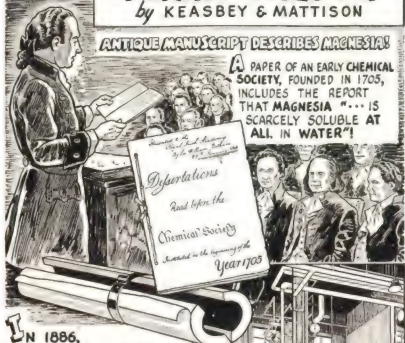 by KEASBEY & MATTISON
ANTIQUE MANUSCRIPT DESCRIBES MAGNESIA!
A PAPER OF AN EARLY CHEMICAL
SOCIETY, FOUNDED IN 1705,
INCLUDES THE REPORT
THAT MAGNESIA "··· IS
SCARCELY SOLUBLE AT
ALL IN WATER"!
Presented to the
By the
Dissertations
Read before the
Chemical Society
Instituted in the beginning of the
Year 1705
IN 1886,